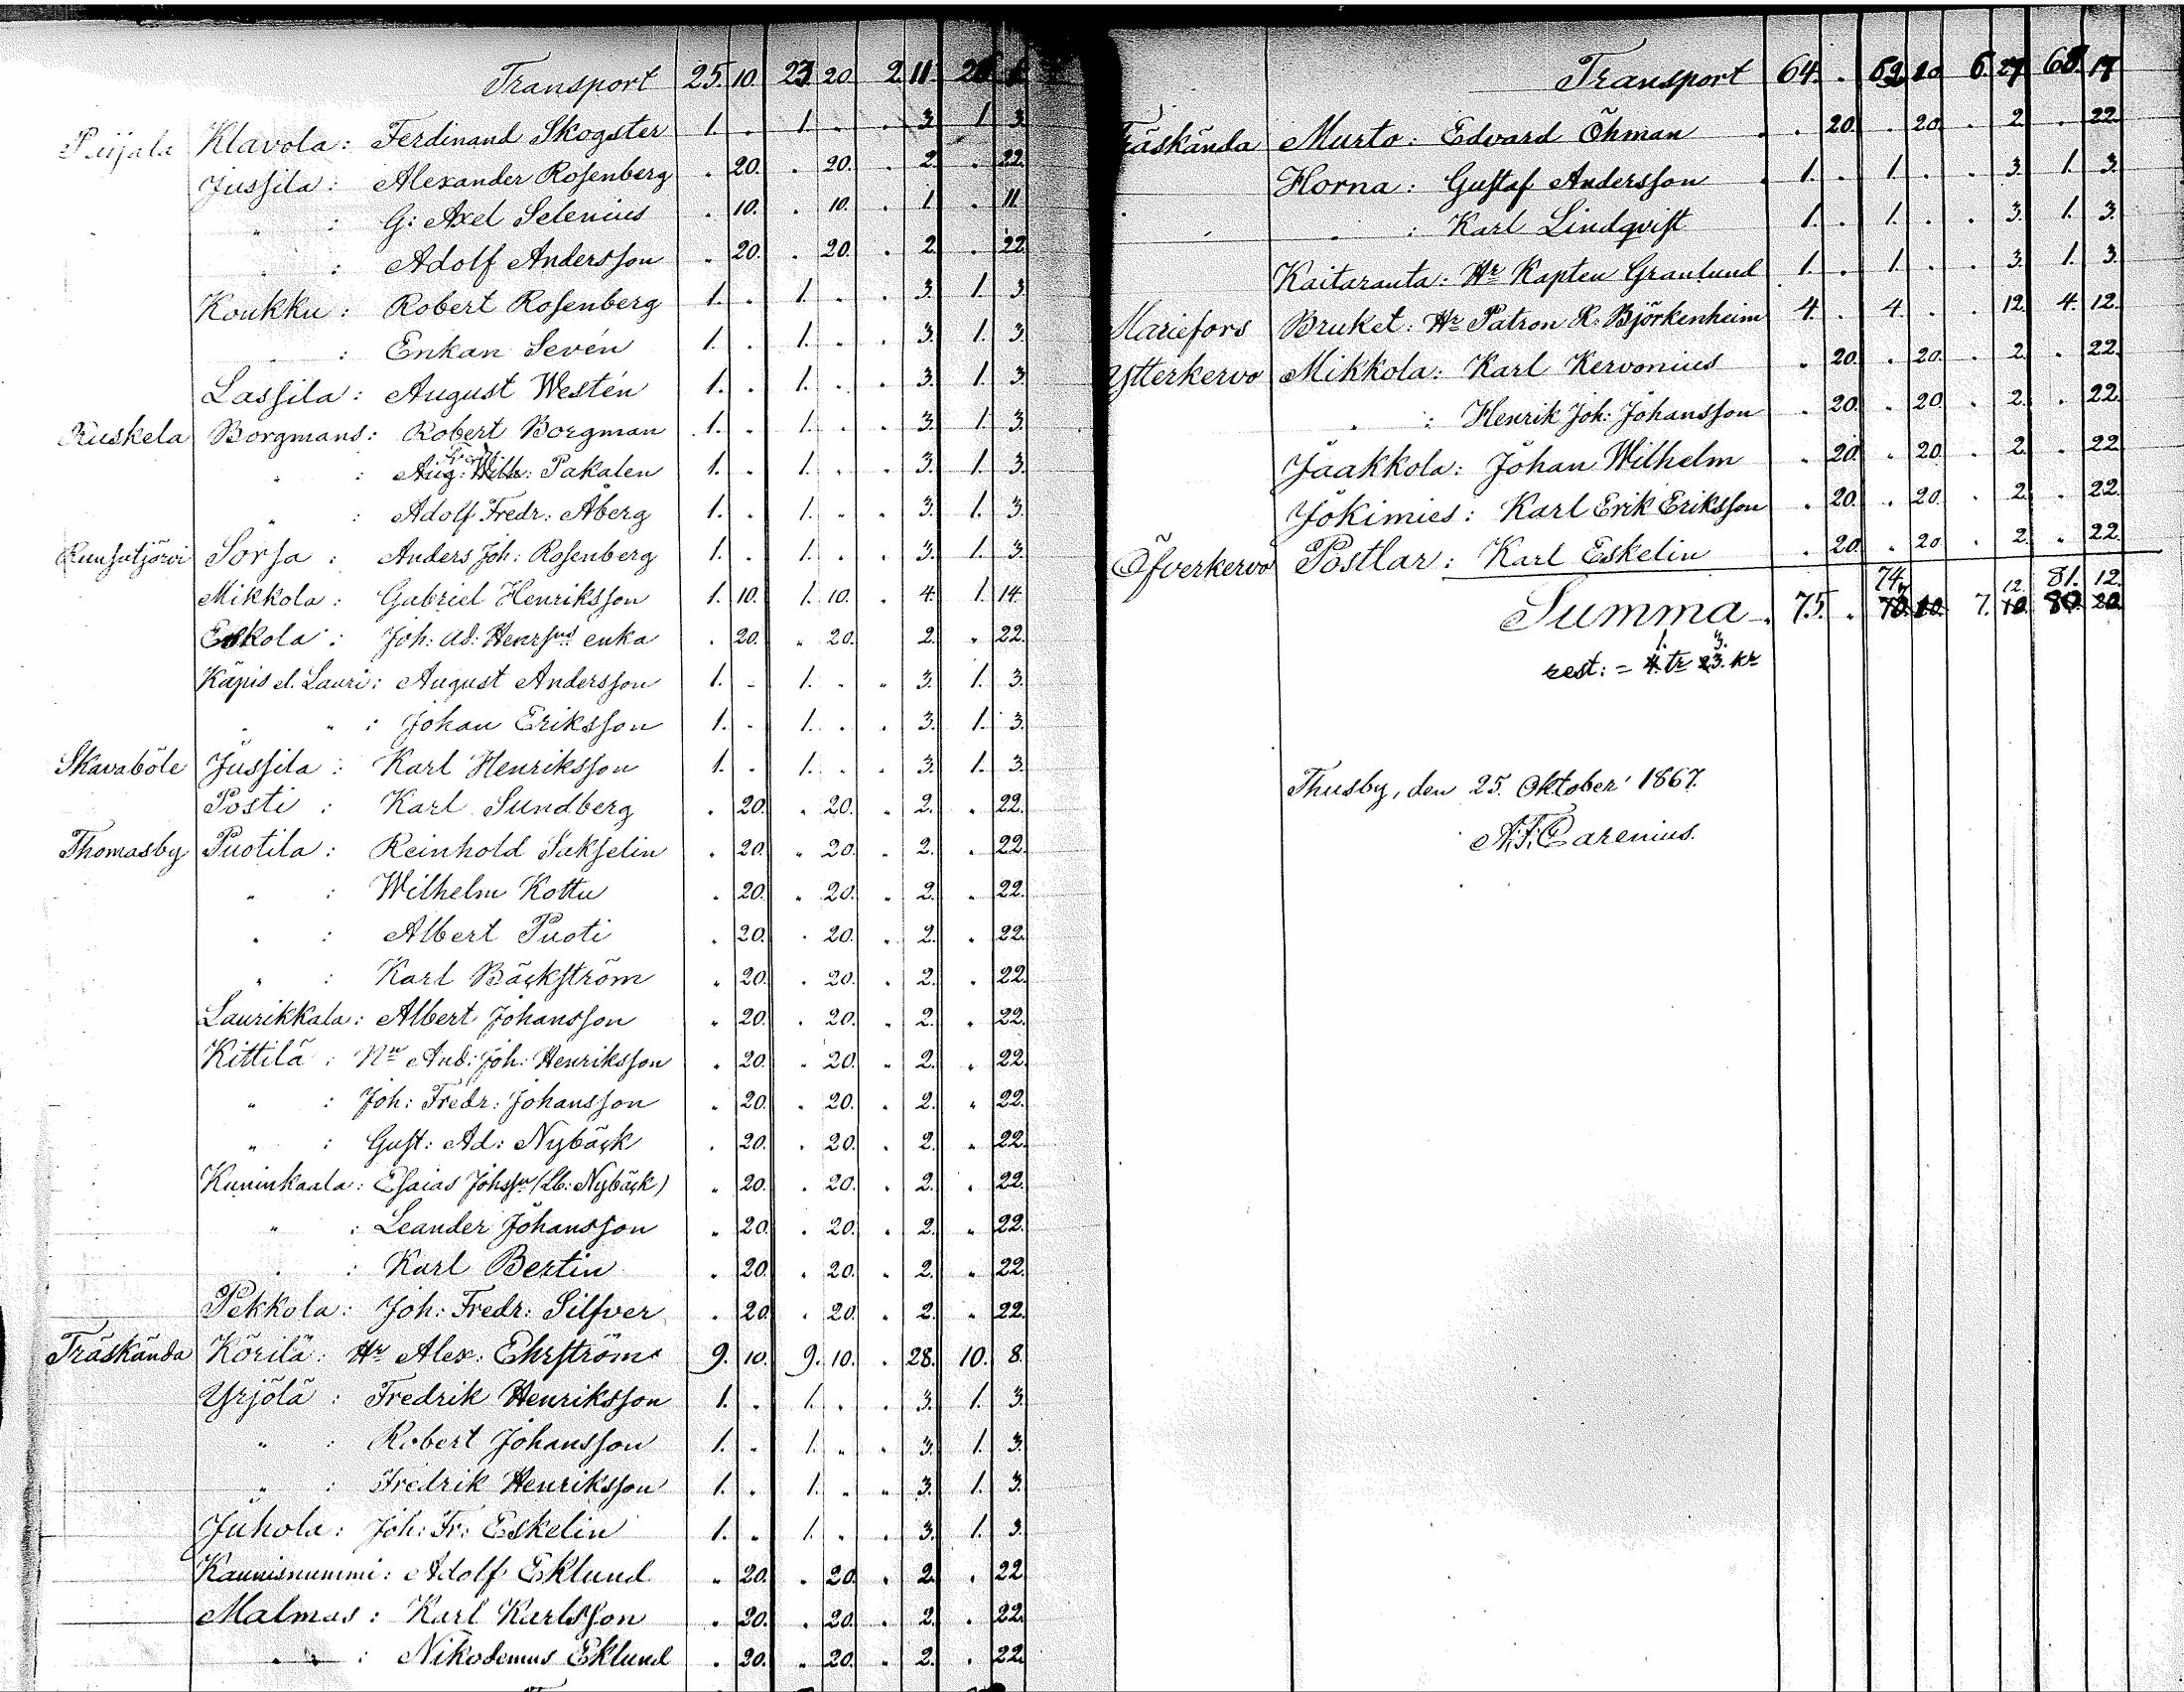 Transport 25. 10. 23 20. 2. 11.
Klavola: Ferdinand Skogster 1. . 1. . . 3. 1. 3.
Jussila: Alexander Rosenberg . 20. . 20. . 2. . 22.
" : G: Axel Selenius . 10. . 10. . 1. . 11.
" : Adolf Andersson . 20. . 20. . 2. . 22.
Koukku: Robert Rosenberg 1. . 1. . . 3. 1. 3.
" : Enkan Sevén 1. . 1. . . 3. 1. 3.
Lassila: August Westén 1. . 1. . . 3. 1. 3.
Ruskela Borgmans: Robert Borgman 1. . 1. . . 3. 1. 3.
" : Aug: Pakalen 1. . 1. . . 3. 1. 3.
" : Adolf Fredr: Åberg 1. . 1. . . 3. 1. 3.
Sorsa: Anders Joh: Rosenberg 1. . 1. . . 3. 1. 3.
Mikkola: Gabriel Henriksson 1. 10. 1. 10. . 4. 1. 14.
Eskola: Joh: Ad: enka . 20. . 20. 2. . 22.
Käpis el. Lauri: August Andersson 1. . 1. . . 3. 1. 3.
" " : Johan Eriksson 1. . 1. . . 3. 1. 3.
Skavaböle Jussila: Karl Henriksson 1. . 1. . . 3. 1. 3.
Posti: Karl Sundberg . 20. . 20. . 2. . 22.
Thomasby Puotila: Reinhold Sakselin . 20. . 20. . 2. . 22.
" : Wilhelm Kottu . 20. . 20. . 2. . 22.
" : Albert Puoti . 20. . 20. . 2. . 22.
" : Karl Bäckström . 20. . 20. . 2. . 22.
Laurikkala: Albert Johansson . 20. . 20. . 2. . 22.
Kittilä: And: Joh: Henriksson . 20. . 20. . 2. . 22.
" : Joh: Fredr: Johansson . 20. . 20. . 2. . 22.
" : Gust: Ad: Nybäck . 20. . 20. . 2. . 22.
Kuninkaala: Esaias Johssn (Lb: Nybäck) . 20. . 20. . 2. . 22.
" : Leander Johansson . 20. . 20. . 2. . 22.
" : Karl Bertin . 20. . 20. . 2. . 22.
Pekkola: Joh: Fredr: Silfver . 20. . 20. . 2. . 22.
Träskända Körilä: Hr Alex: Ehrström 9. 10. 9. 10. . 28. 10. 8.
Yrjölä: Fredrik Henriksson 1. . 1. . . 3. 1. 3.
" : Robert Johansson 1. . 1. . . 3. 1. 3.
" : Fredrik Henriksson 1. . 1. . . 3. 1. 3.
Juhola: Joh: Fr: Eskelin 1. . 1. . . 3. 1. 3.
Kaunisnummi: Adolf Eklund . 20. . 20. . 2. . 22.
Malmas: Karl Karlsson . 20. . 20. . 2. . 22.
" : Nikodemus Eklund . 20. . 20. . 2. . 22.
Transport 64. . 6. 27. 68. 17.
Träskända Murto: Edvard Öhman . 20. . 20. . 2. . 22.
Horna: Gustaf Andersson 1. . 1. . . 3. 1. 3.
" " : Karl Lindqvist 1. . 1. . . 3. 1. 3.
Kaitaranta: Hr Kapten Granlund 1. . 1. . . 3. 1. 3.
Mariefors Bruket: Hr Patron R. Björkenheim 4. . 4. . . 12. 4. 12.
Ytterkervo Mikkola: Karl Kervonius . 20. . 20. . 2. . 22.
" : Henrik Joh: Johansson . 20. . 20. . 2. . 22.
Jaakkola: Johan Wilhelm . 20. . 20. . 2. . 22.
Jokimies: Karl Erik Eriksson . 20. . 20. . 2. . 22.
Öfverkervo Postlar: Karl Eskelin . 20. . 20. . 2. . 22.
74. 12. 81. 12.
Summa . 75. . 7.
1. 3.
rest: = tr kr
Thusby, den 25. Oktober 1867.
A. F. Carenius.